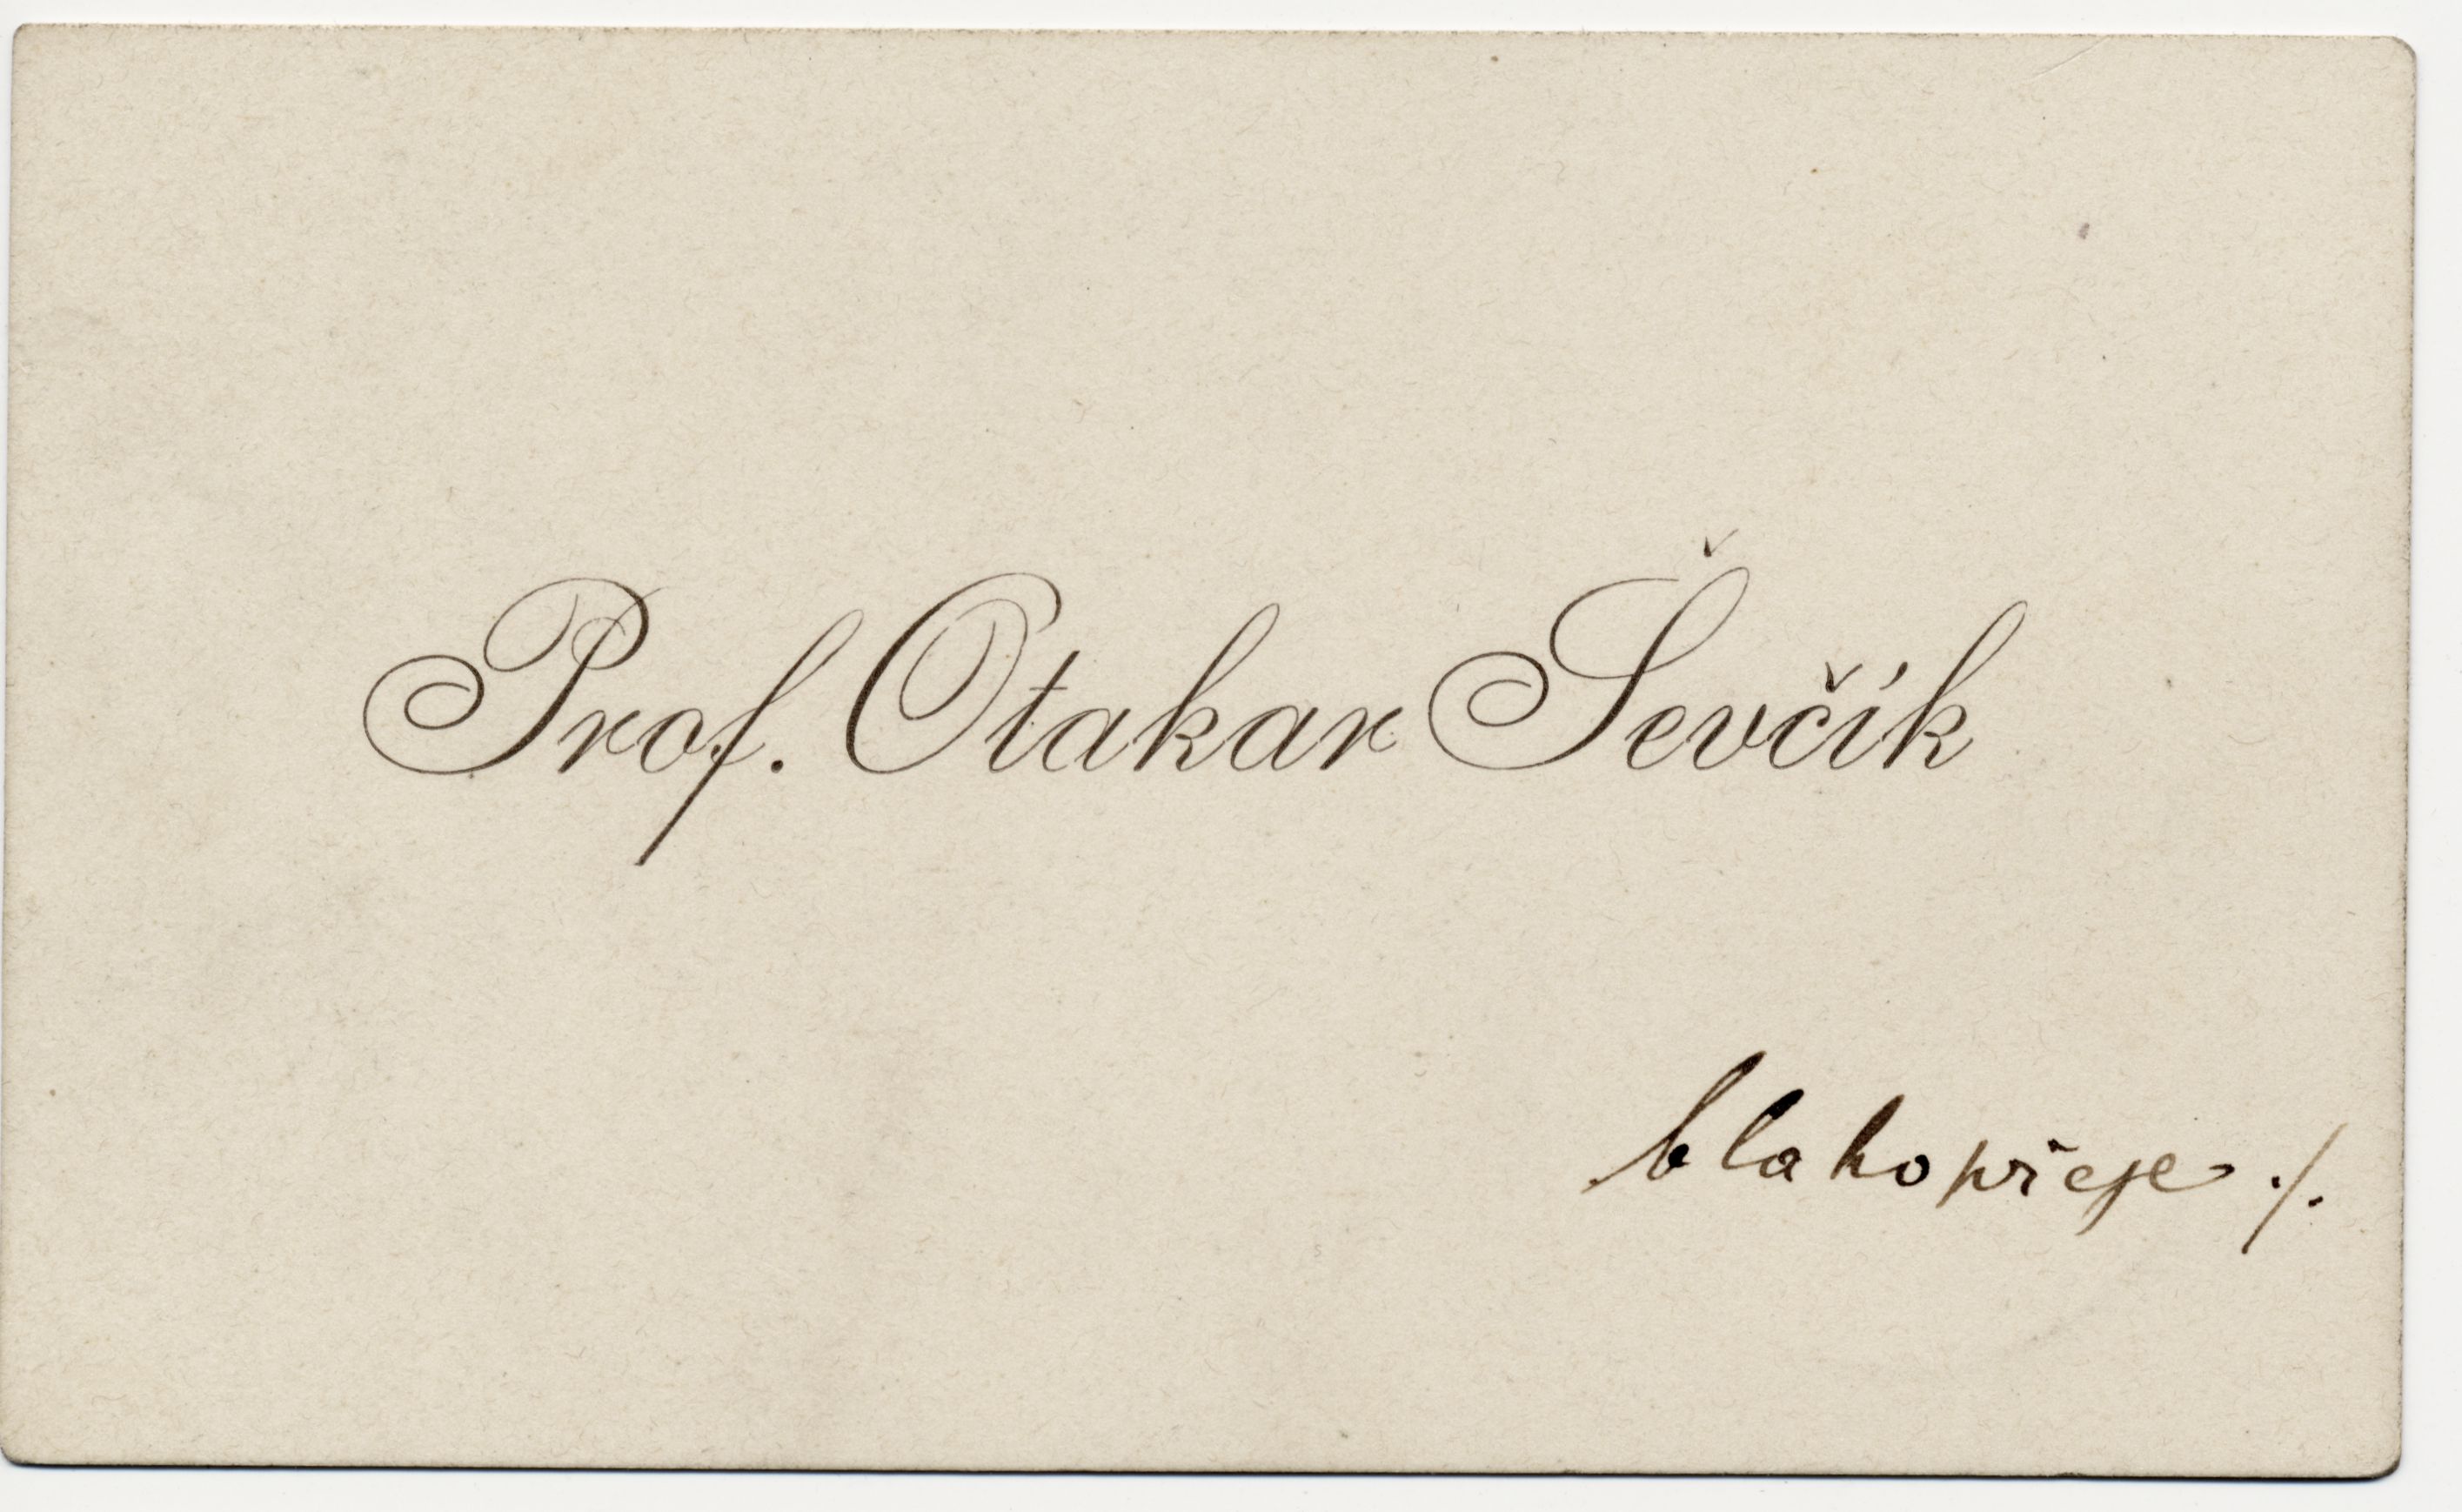 Prof. Otakar Ševčík
blahopřeje ./.